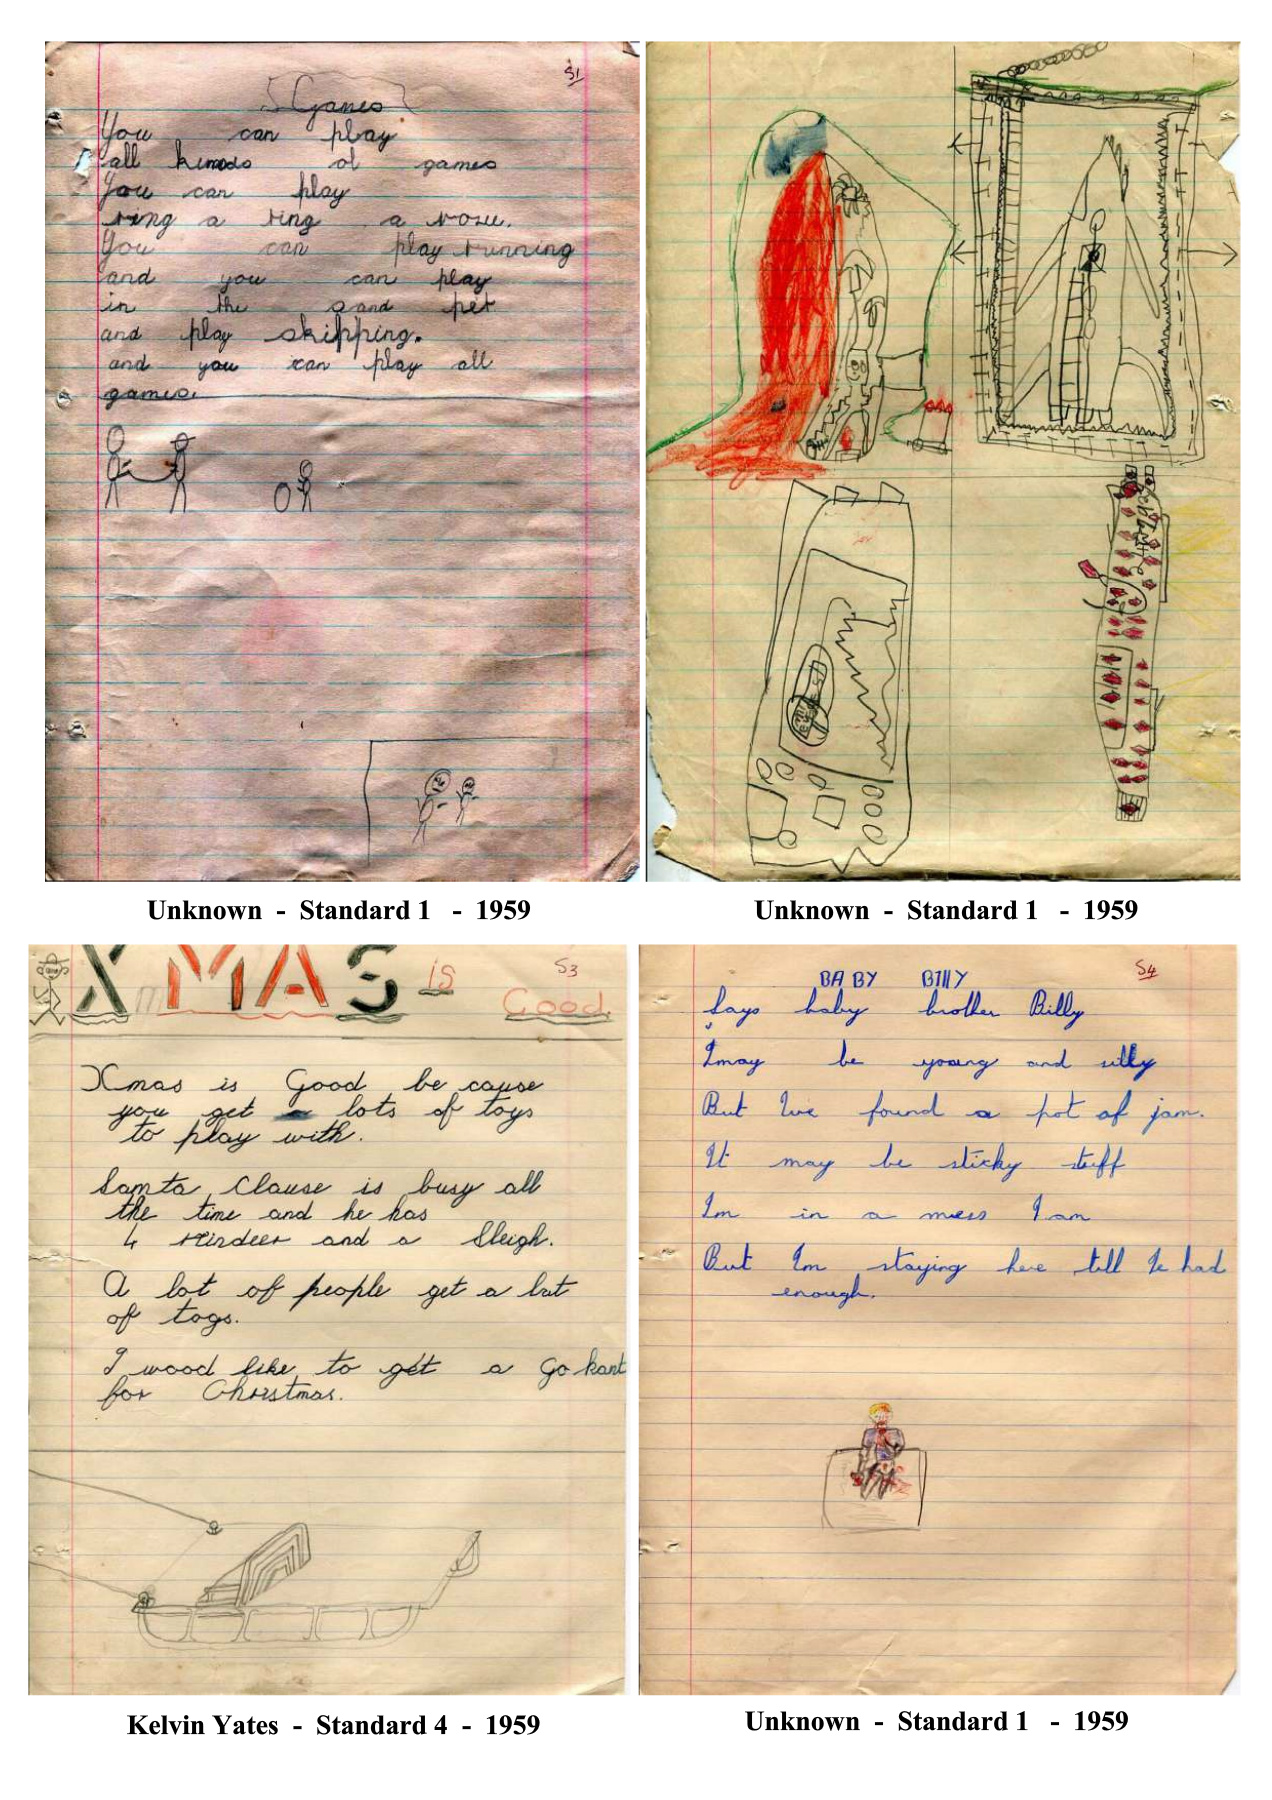 S1
Games
You can play
all kinds of games
You can play
ring a ring a rosie.
You can play running
and you can play
in the sand pet
and play skipping.
and you can play all
games.
Unknown - Standard 1 - 1959
Unknown - Standard 1 - 1959
XMAS is Good.
S3
Xmas is Good be cause
you get lots of toys
to play with.
Santa Clause is busy all
the time and he has
4 reindeer and a Sleigh.
A lot of people get a lut
of toys.
I wood like to get a Go kart
for Christmas.
Kelvin Yates - Standard 4 - 1959
BABY BIllY
S4
Says baby brother Billy
I may be young and silly
But Ive found a pot of jam.
It may be sticky stuff
Im in a mess I am
But Im staying here till Ie had
enough.
Unknown - Standard 1 - 1959